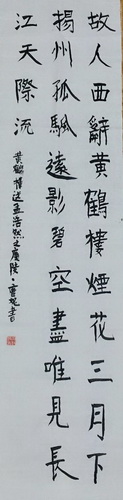 故人西辭黃鶴樓煙花三月下
揚州孤颿遠影碧空盡唯見長
江天際流
黃鶴樓送孟浩然之廣陵 書